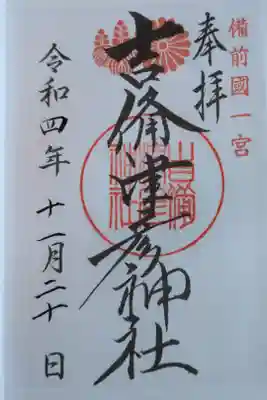 備前國一宮
奉拝
吉備津彦神社
令和四年十一月二十日